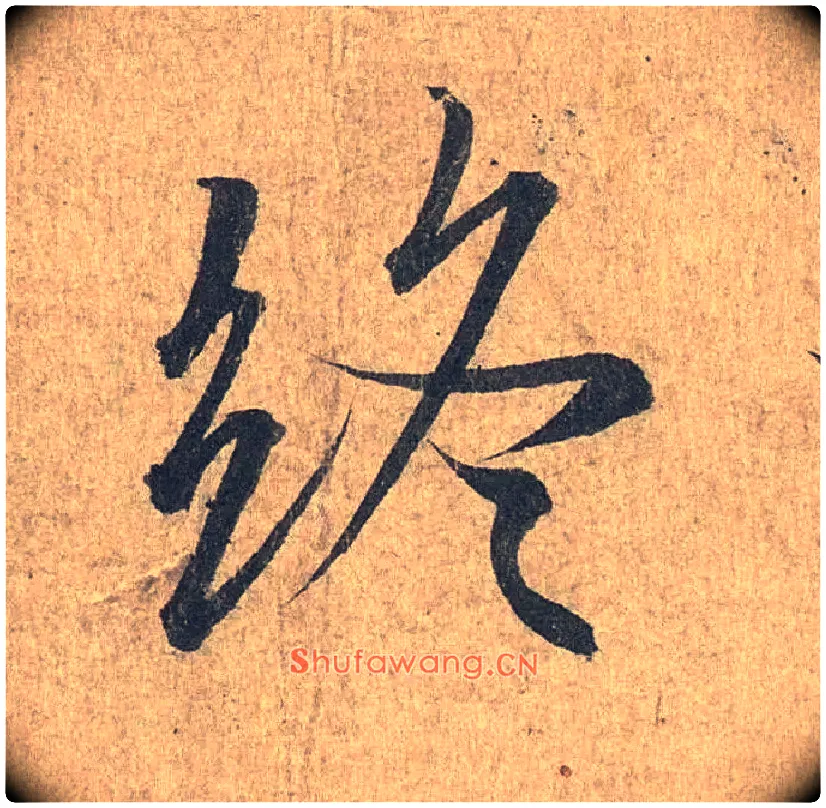 終
Shufawang.CN